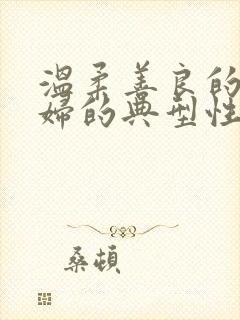 温柔善良的
婦的典型性
桑頓